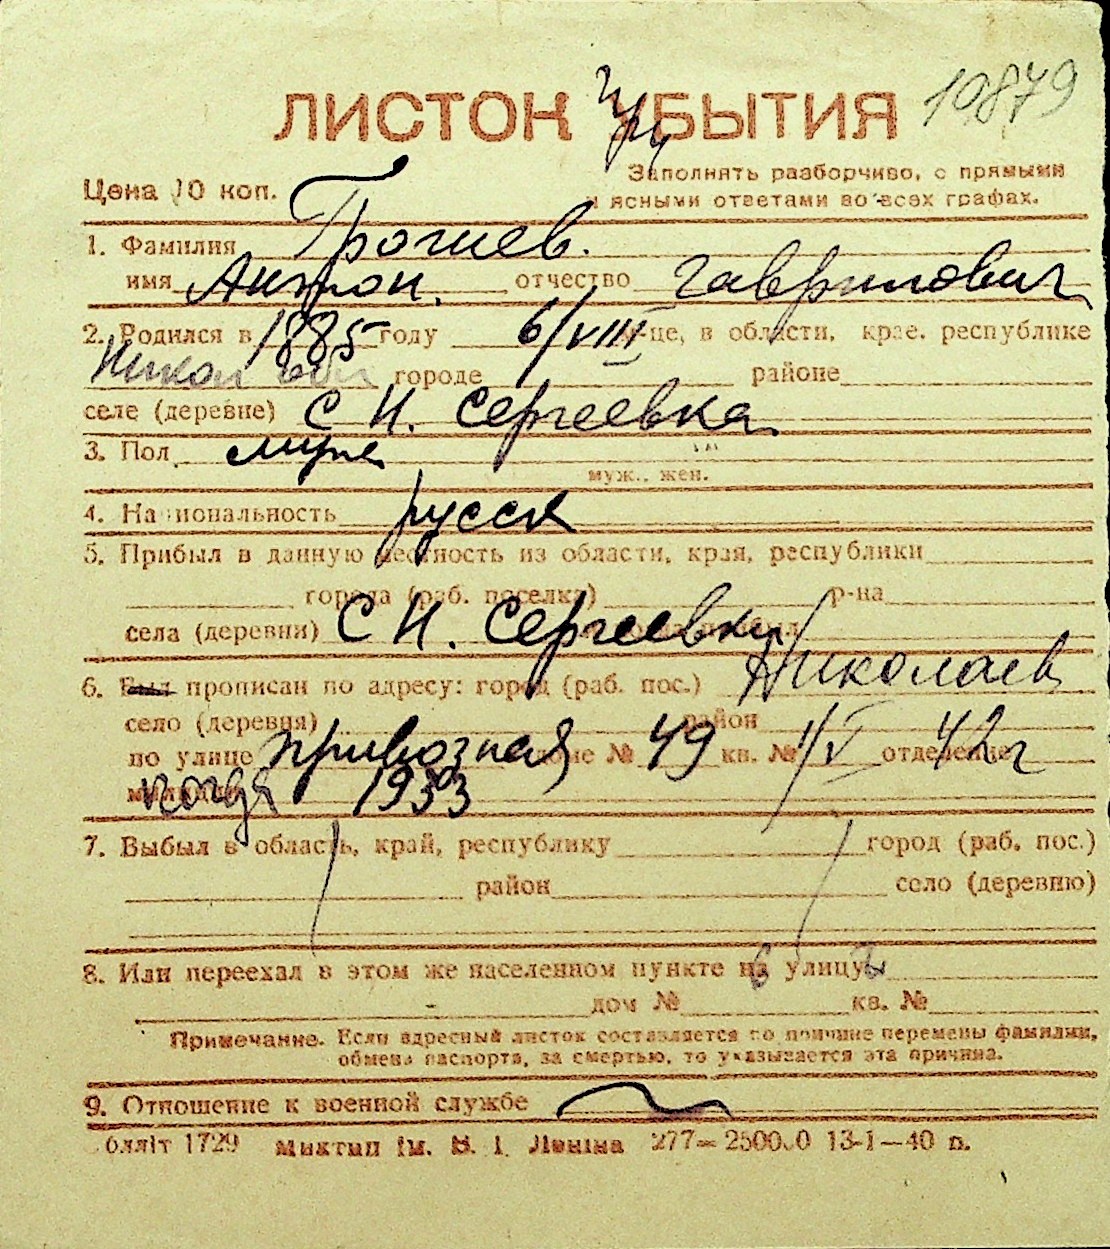 10879
ЛИСТОК При УБЫТИЯ
Цена 10 коп.
Заполнять разборчиво, с прямыми
и ясными ответами во всех графах.
1. Фамилия
имя Антон. отчество Гаврилович
2. Родился в 1885 году 6/VIII м-це, в области, крае, республике
Никол обл городе районе
селе (деревне) С Н. Сергеевка
3. Пол муж
муж., жен.
4. Национальность русск
5. Прибыл в данную местность из области, края, республики
города (раб. поселка) р-на
села (деревни) С Н. Сергеевки
6. Был прописан по адресу: город (раб. пос.) Николаев
село (деревня) район
по улице привозная доме № 49 кв. № 1/V отделение 42 г
милиции когда 1933
7. Выбыл в область, край, республику город (раб. пос.)
район село (деревню)
8. Или переехал в этом же населенном пункте на улицу
дом № кв. №
Примечание. Если адресный листок составляется по причине перемены фамилии,
обмена паспорта, за смертью, то указывается эта причина.
9. Отношение к военной службе
обллiт 1729 Миктип iм. В. I. Ленiна 277— 250000 13-1—40 п.